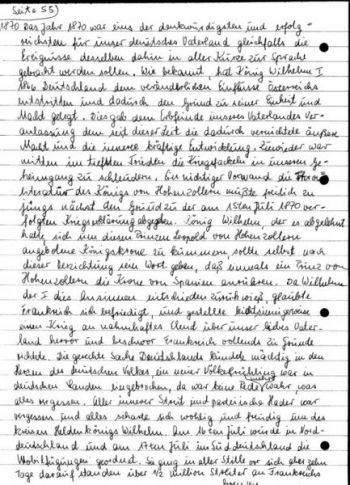 Seite 55)
1870 Das Jahr 1870 war eins der denkwürdigsten und erfolg-
reichsten für unser deutsches Vaterland gleichfalls die
Ereignisse desselben dahin in aller Kürze zur Sprache
gebracht werden sollen. Wie bekannt, hat König Wilhelm I
1866 Deutschland dem verderblichen Einflusse Österreichs
entstritten und dadurch den Grund zu seiner Einheit und
Macht gelegt. Dies gab dem Erbfeinde unseres Vaterlandes Ver-
anlassung dem seit dieser Zeit die dadurch vernichtete äußere
Macht und die innere kräftige Entwicklung. zuwider war
mitten im tiefsten Frieden die Kriegsfackeln in unseren
zu schleudern. Ein nichtiger Vorwand die
des Königs von Hohenzollern müßte
zunächst den Grund zu der am 15ten Juli 1870 ver-
folgten Kriegserklärung abgeben. König Wilhelm, der es abgelehnt
hatte sich um diesen Prinzen Leopold von Hohenzollern
angebotene Königskrone zu kümmern sollte selbst nach
dieser Verzichtung sein Wort geben, daß niemals ein Prinz von
Hohenzollern die Krone von Spanien annähme. Da Wilhelm
der I dies Ansinnen entschieden zurückwies, glaubte
Frankreich sich befriedigt, und
einen Krieg an namhaftes Elend über unser liebes Vater-
land hervor und beschwor Frankreich vollends zu Grunde
richtete. Die gerechte Sache Deutschlands zündete mächtig in den
Herzen des deutschen Volkes, ein neuer Völkerfrühling war in
deutschen Landen eingebrochen, da war keine Fehde mehr wahr was
alles vergessen. Aller innerer Streit und parteiische Hader war
vergessen und alles scharte sich wohlig und freudig um des
greisen Heldenkönigs Wilhelm. Am 16ten Juli wurde in Nord-
deutschland und am 17ten Juli in Süddeutschland die
Mobilfügungen geordnet. So ging in aller Stille vor sich aber zehn
Tage darauf standen über 1/2 million Streiter an Frankreichs